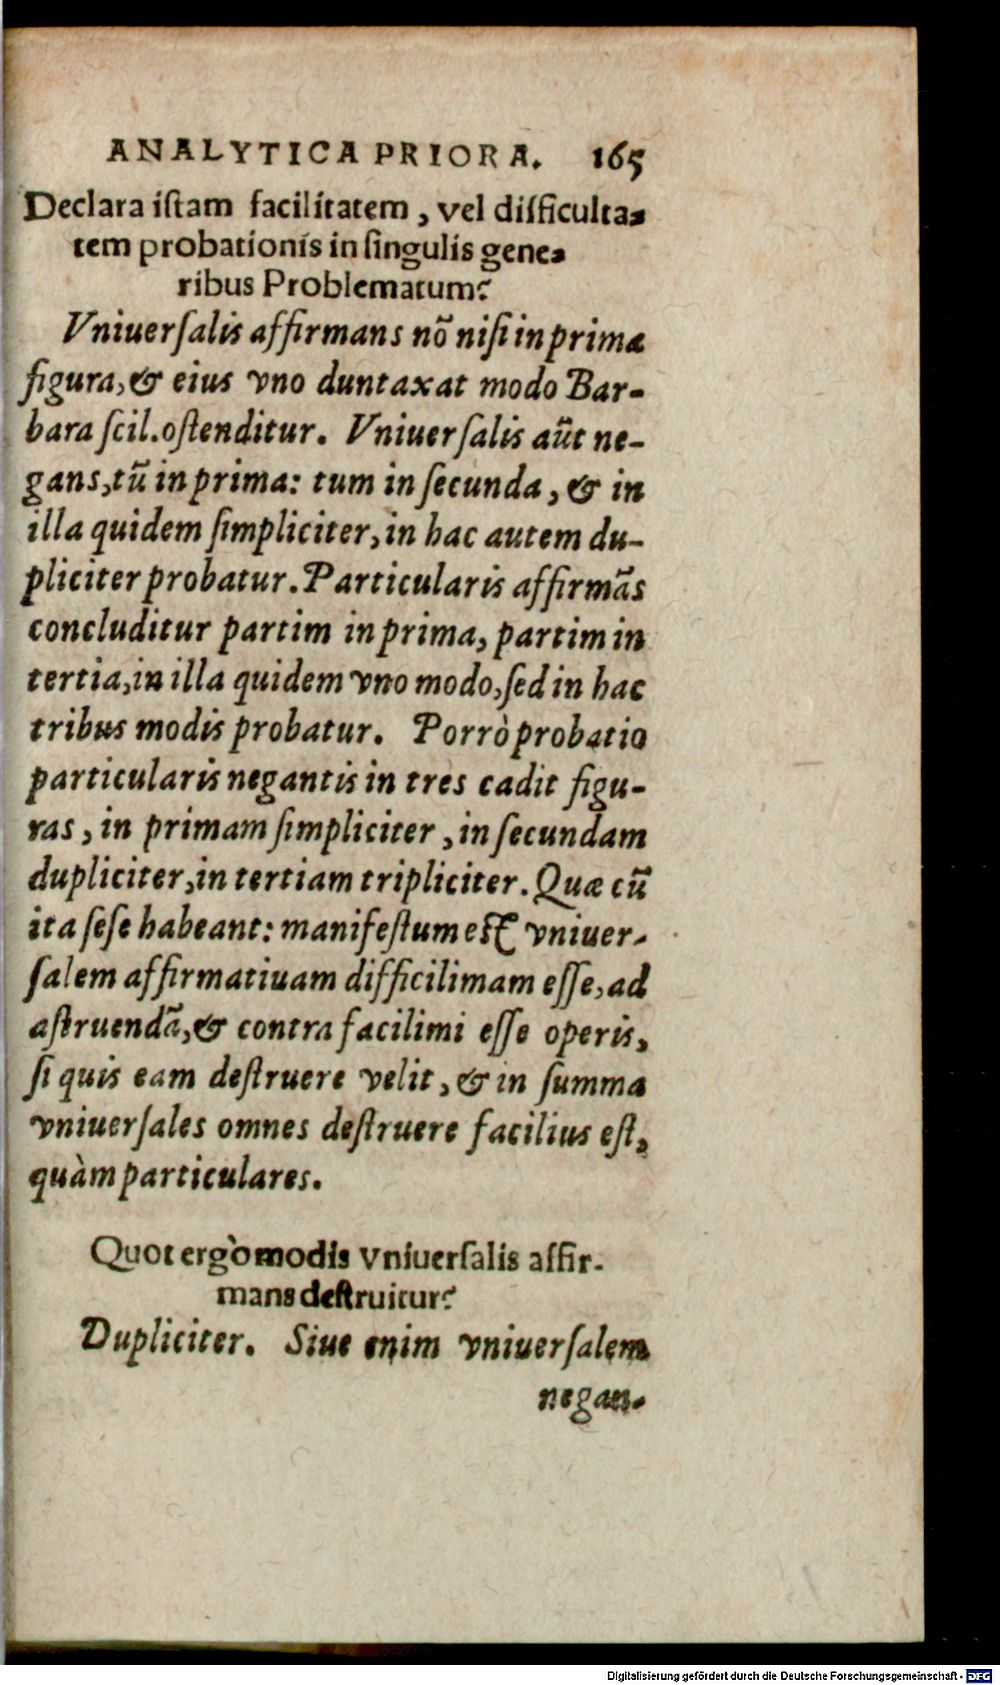 ANALYTICA PRIORA. 165
Declara iſtam facilitatem, vel difficulta-
tem probationis in ſingulis gene-
ribus Problematum?
Vniuerſalis affirmans nō niſi in prima
figura, & eius vno duntaxat modo Bar-
bara ſcil. oſtenditur. Vniuerſalis aūt ne-
gans, tū in prima: tum in ſecunda, & in
illa quidem ſimpliciter, in hac autem du-
pliciter probatur. Particularis affirmās
concluditur partim in prima, partim in
tertia, in illa quidem vno modo, ſed in hac
tribus modis probatur. Porrò probatio
particularis negantis in tres cadit figu-
ras, in primam ſimpliciter, in ſecundam
dupliciter, in tertiam tripliciter. Quæ cū
ita ſeſe habeant: manifeſtum eſt vniuer-
ſalem affirmatiuam difficilimam eſſe, ad
aſtruendā, & contra facilimi eſſe operis,
ſi quis eam deſtruere velit, & in ſumma
vniuerſales omnes deſtruere facilius eſt,
quàm particulares.
Quot ergò modis vniuerſalis affir-
mans deſtruitur?
Dupliciter. Siue enim vniuerſalem
negan-
Digitalisierung gefördert durch die Deutsche Forschungsgemeinschaft - DFG